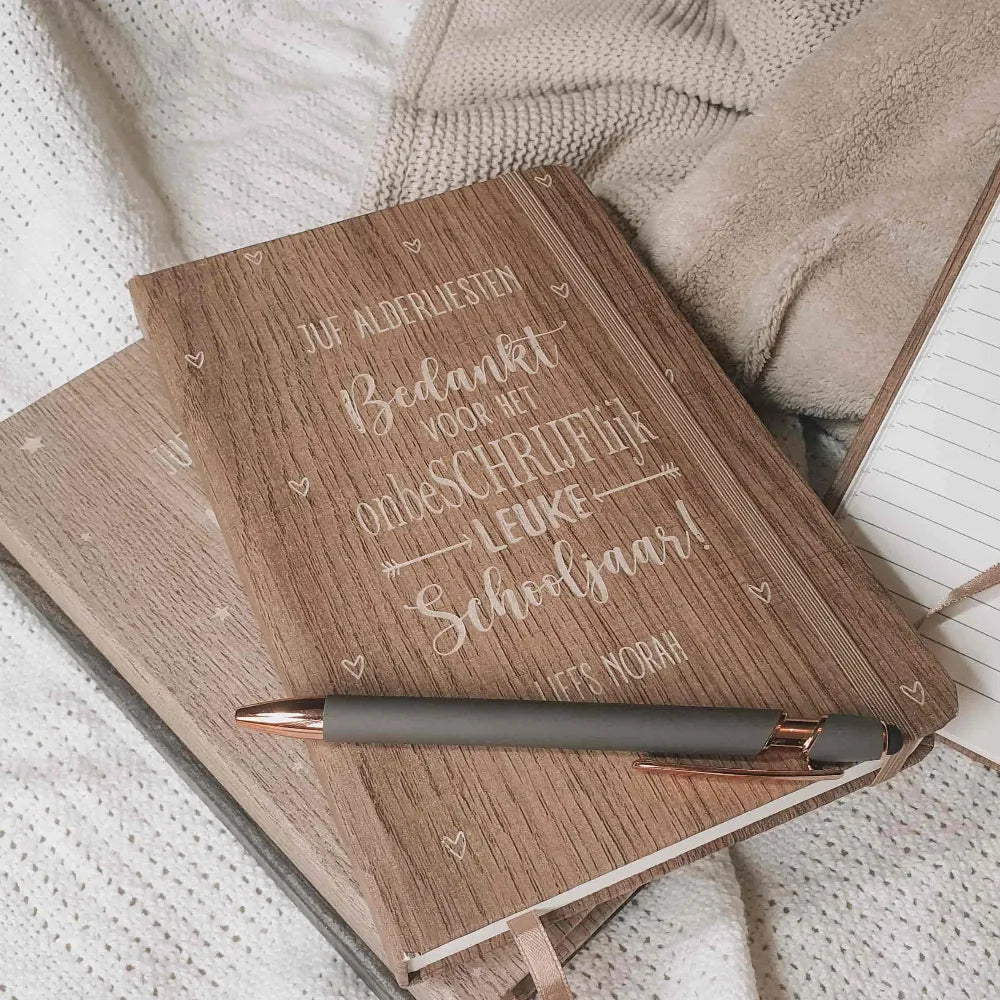 JUF ALDERLIESTEN
Bedankt
VOOR HET
onbeSCHRIJFlijk
LEUKE
Schooljaar!
LIEFS NORAH
JUF